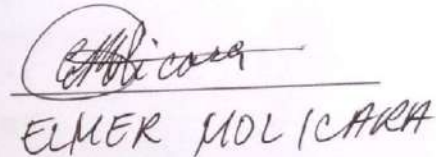 ELMER MOLICARA